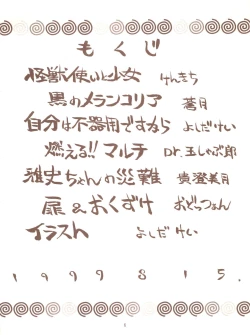 もくじ
怪獣使いと少女 けんきち
黒のメランコリア 蒼月
自分は不器用ですねら よしだけい
燃える!!マルチ Dr.玉しゃぶ郎
雅史ちゃんの災難 貴澄美月
扉&おくづけ おどっつぁん
イラスト よしだけい
1999815.